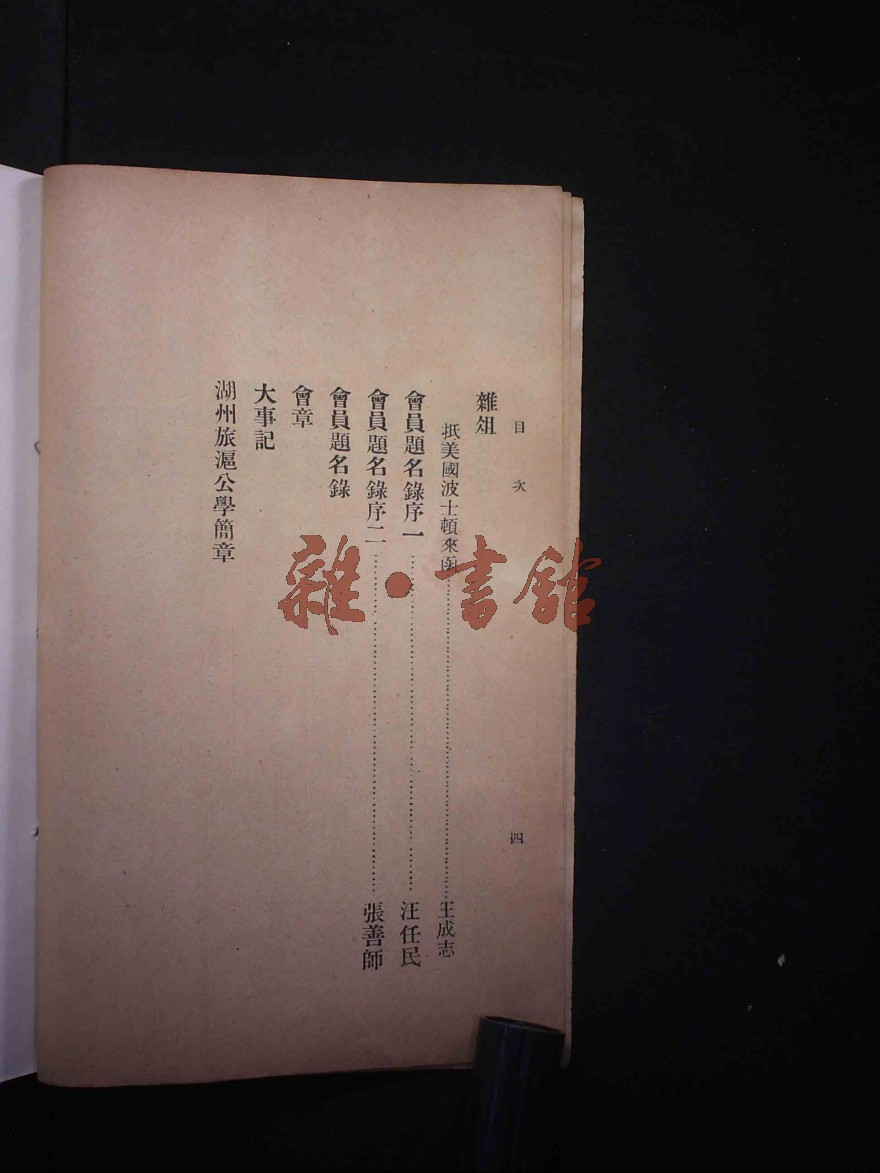 目次
四
雜俎
抵美國波士頓來函……王成志
會員題名錄序一……汪任民
會員題名錄序二……張善師
會員題名錄
會章
大事記
湖州旅滬公學簡章
雜·書館